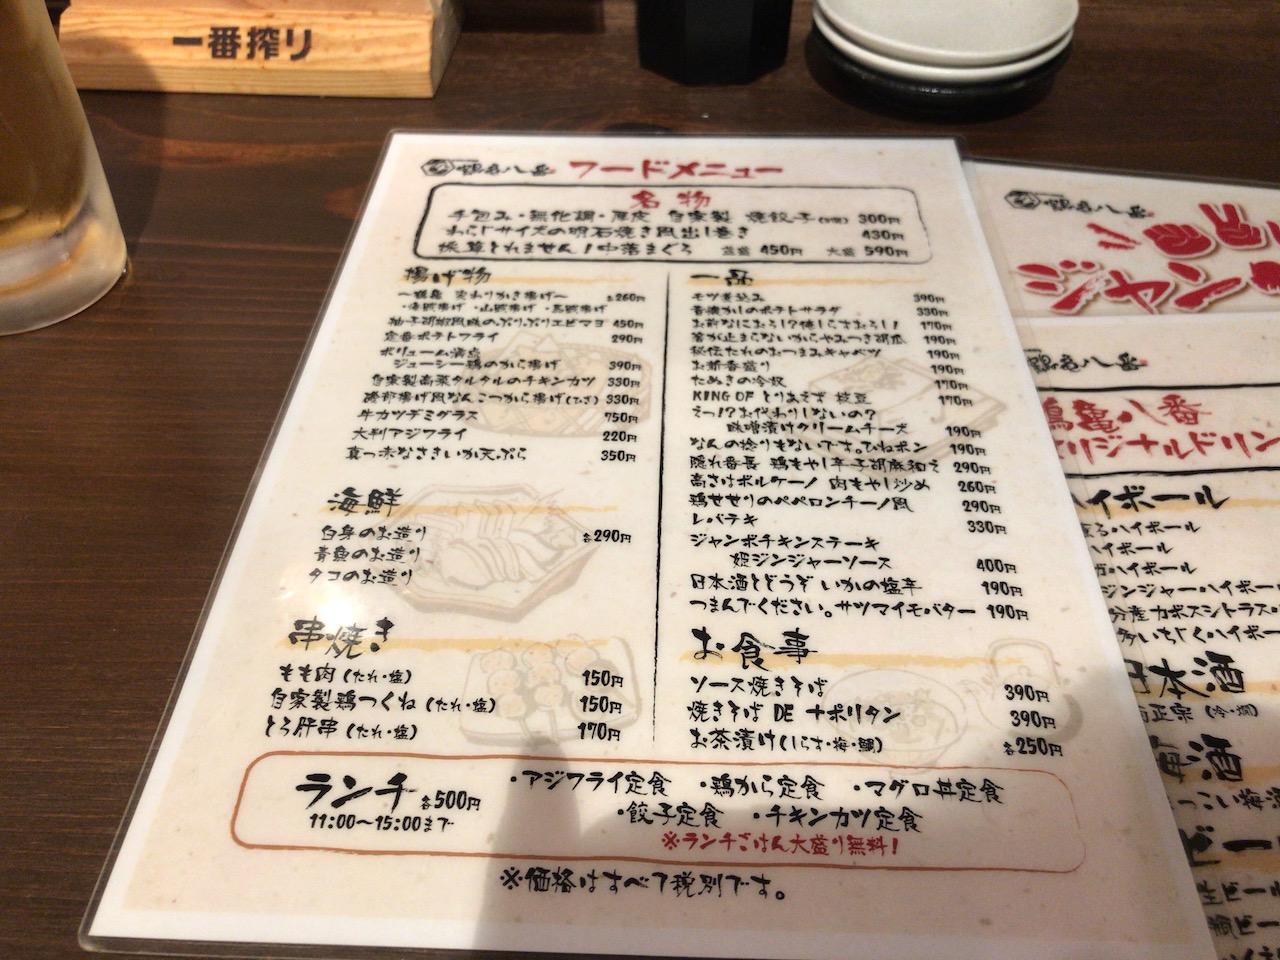 一番搾り
鶴亀八番 フードメニュー
名物
手包み・無化調・厚皮 自家製 焼餃子 300円
わらじサイズの明石焼き風出し巻き 430円
採算とれません!中落まぐろ 並盛 450円 大盛 590円
揚げ物
〜鶴亀 変わりかき揚げ〜 各260円
・海賊揚げ ・山賊揚げ ・馬賊揚げ
柚子胡椒風味のぷりぷりエビマヨ 450円
定番ポテトフライ 290円
ボリューム満点
ジューシー鶏のから揚げ 390円
自家製高菜タルタルのチキンカツ 330円
磯部揚げ風なんこつから揚げ 330円
牛カツデミグラス 750円
大判アジフライ 220円
真っ赤なさきいか天ぷら 350円
海鮮
白身のお造り 各290円
青魚のお造り
タコのお造り
串焼き
もも肉(たれ・塩) 150円
自家製鶏つくね(たれ・塩) 150円
とろ肝串(たれ・塩) 170円
一品
モツ煮込み 390円
昔懐かしのポテトサラダ 330円
お前なにおろし!?俺しらすおろし! 170円
箸が止まらないからやみつき胡瓜 190円
秘伝たれのおつまみキャベツ 190円
お新香盛り 190円
たぬきの冷奴 170円
KING OF とりあえず 枝豆 170円
えっ!?お代わりしないの?
味噌漬けクリームチーズ 190円
なんの捻りもないです。ひねポン 190円
隠れ番長 鶏もやし辛子胡麻和え 290円
高さはボルケーノ 肉もやし炒め 260円
鶏せせりのペペロンチーノ風 290円
レバテキ 330円
ジャンボチキンステーキ
姫ジンジャーソース 400円
日本酒とどうぞ いかの塩辛 190円
つまんでください。サツマイモバター 190円
お食事
ソース焼きそば 390円
焼きそば DE ナポリタン 390円
お茶漬け(しらす・梅・鯛) 各250円
ランチ 各500円
11:00〜15:00まで
・アジフライ定食 ・鶏から定食 ・マグロ丼定食
・餃子定食 ・チキンカツ定食
※ランチごはん大盛り無料!
※価格はすべて税別です。
鶴亀八番
ジャン
鶴亀八番
鶴亀八番
オリジナルドリン
ハイボール
ハイボール
ハイボール
ハイボール
ジンジャーハイボー
分産カボスシトラス
多いちじくハイボー
日本酒
正宗 (冷・燗)
梅酒
っこい梅酒
ビー
生ビール
瓶ビー